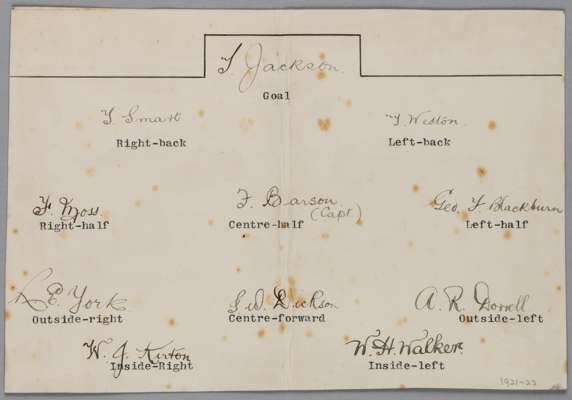 T. Jackson.
Goal
T. Smart
T Weston.
Right-back
Left-back
F. Moss.
F. Barson
(Capt.)
Geo. F. Blackburn
Right-half
Centre-half
Left-half
R E. York
G. W. Dickson
A. R. Dorrell
Outside-right
Centre-forward
Outside-left
W. J. Kirton
W. H. Walker.
Inside-Right
Inside-left
1921-22